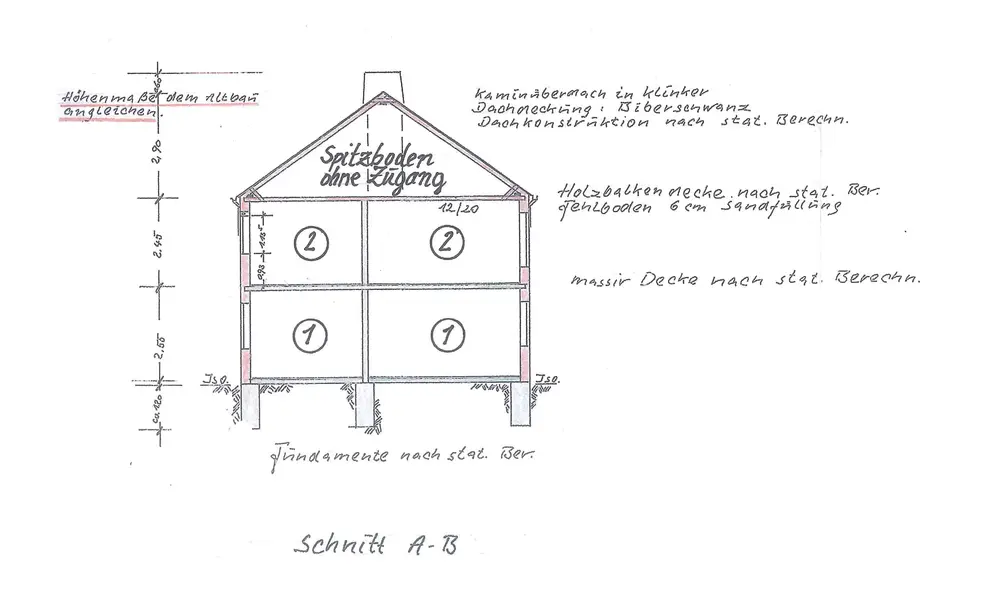 Höhenmaße dem Altbau
angleichen.
Kaminüberdach in Klinker
Dachdeckung: Biberschwanz
Dachkonstruktion nach stat. Berechn.
Spitzboden
ohne Zugang
2,90
Holzbalkendecke nach stat. Ber.
Fehlboden 6 cm Sandfüllung
12/20
2 2
2,45
massiv Decke nach stat. Berechn.
1 1
2,50
Iso. Iso.
ca 120
Fundamente nach stat. Ber.
Schnitt A-B